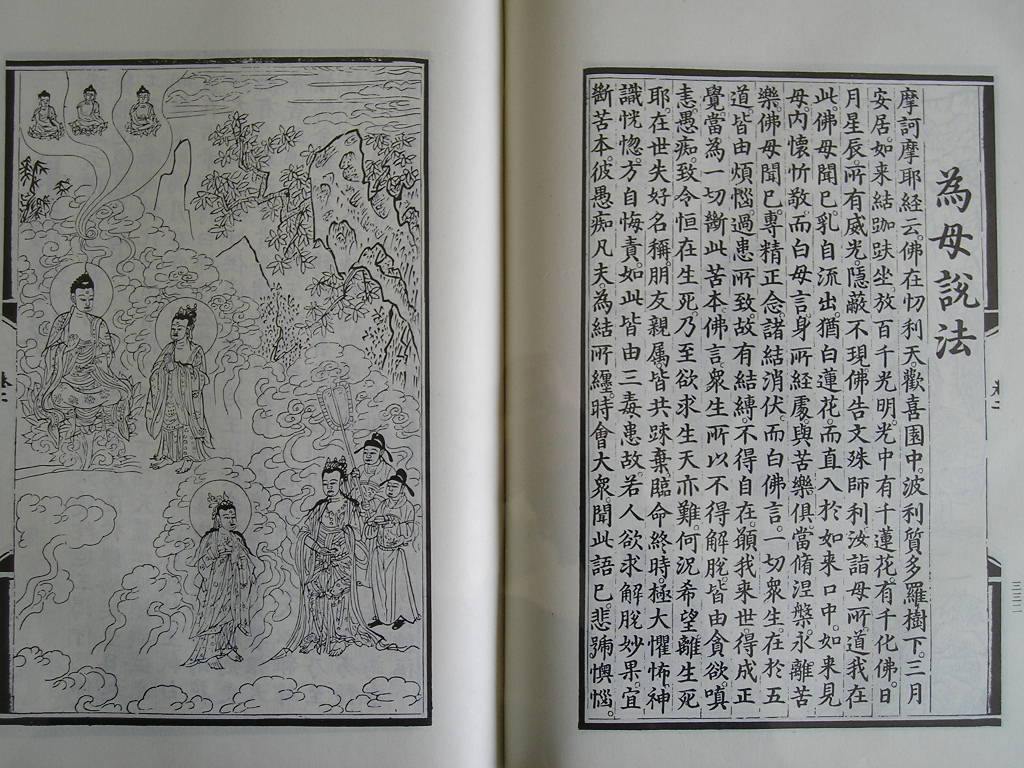 為母說法
摩訶摩耶經云。佛在忉利天歡喜園中。波利質多羅樹下。三月
安居。如來結跏趺坐。放百千光明。光中有千蓮花。有千化佛。日
月星辰。所有威光。隱蔽不現。佛告文殊師利。汝詣母所。道我在
此。佛母聞已。乳自流出。猶白蓮花。而直入於如來口中。如來見
母。內懷忻敬。而白母言。身所經處。與苦樂俱。當脩涅槃。永離苦
樂。佛母聞已。專精正念。諸結消伏。而白佛言。一切眾生在於五
道。皆由煩惱過患所致。故有結縛。不得自在。願我來世。得成正
覺。當為一切斷此苦本。佛言。眾生所以不得解脫。皆由貪欲嗔
恚愚痴。致令恒在生死。乃至欲求生天亦難。何況希望離生死
耶。在世失好名稱。朋友親屬。皆共踈棄。臨命終時。極大懼怖。神
識恍惚。方自悔責。如此皆由三毒患故。若人欲求解脫妙果。宜
斷苦本。彼愚痴凡夫。為結所纏。時會大眾。聞此語已。悲號懊惱。
卷二
三三二